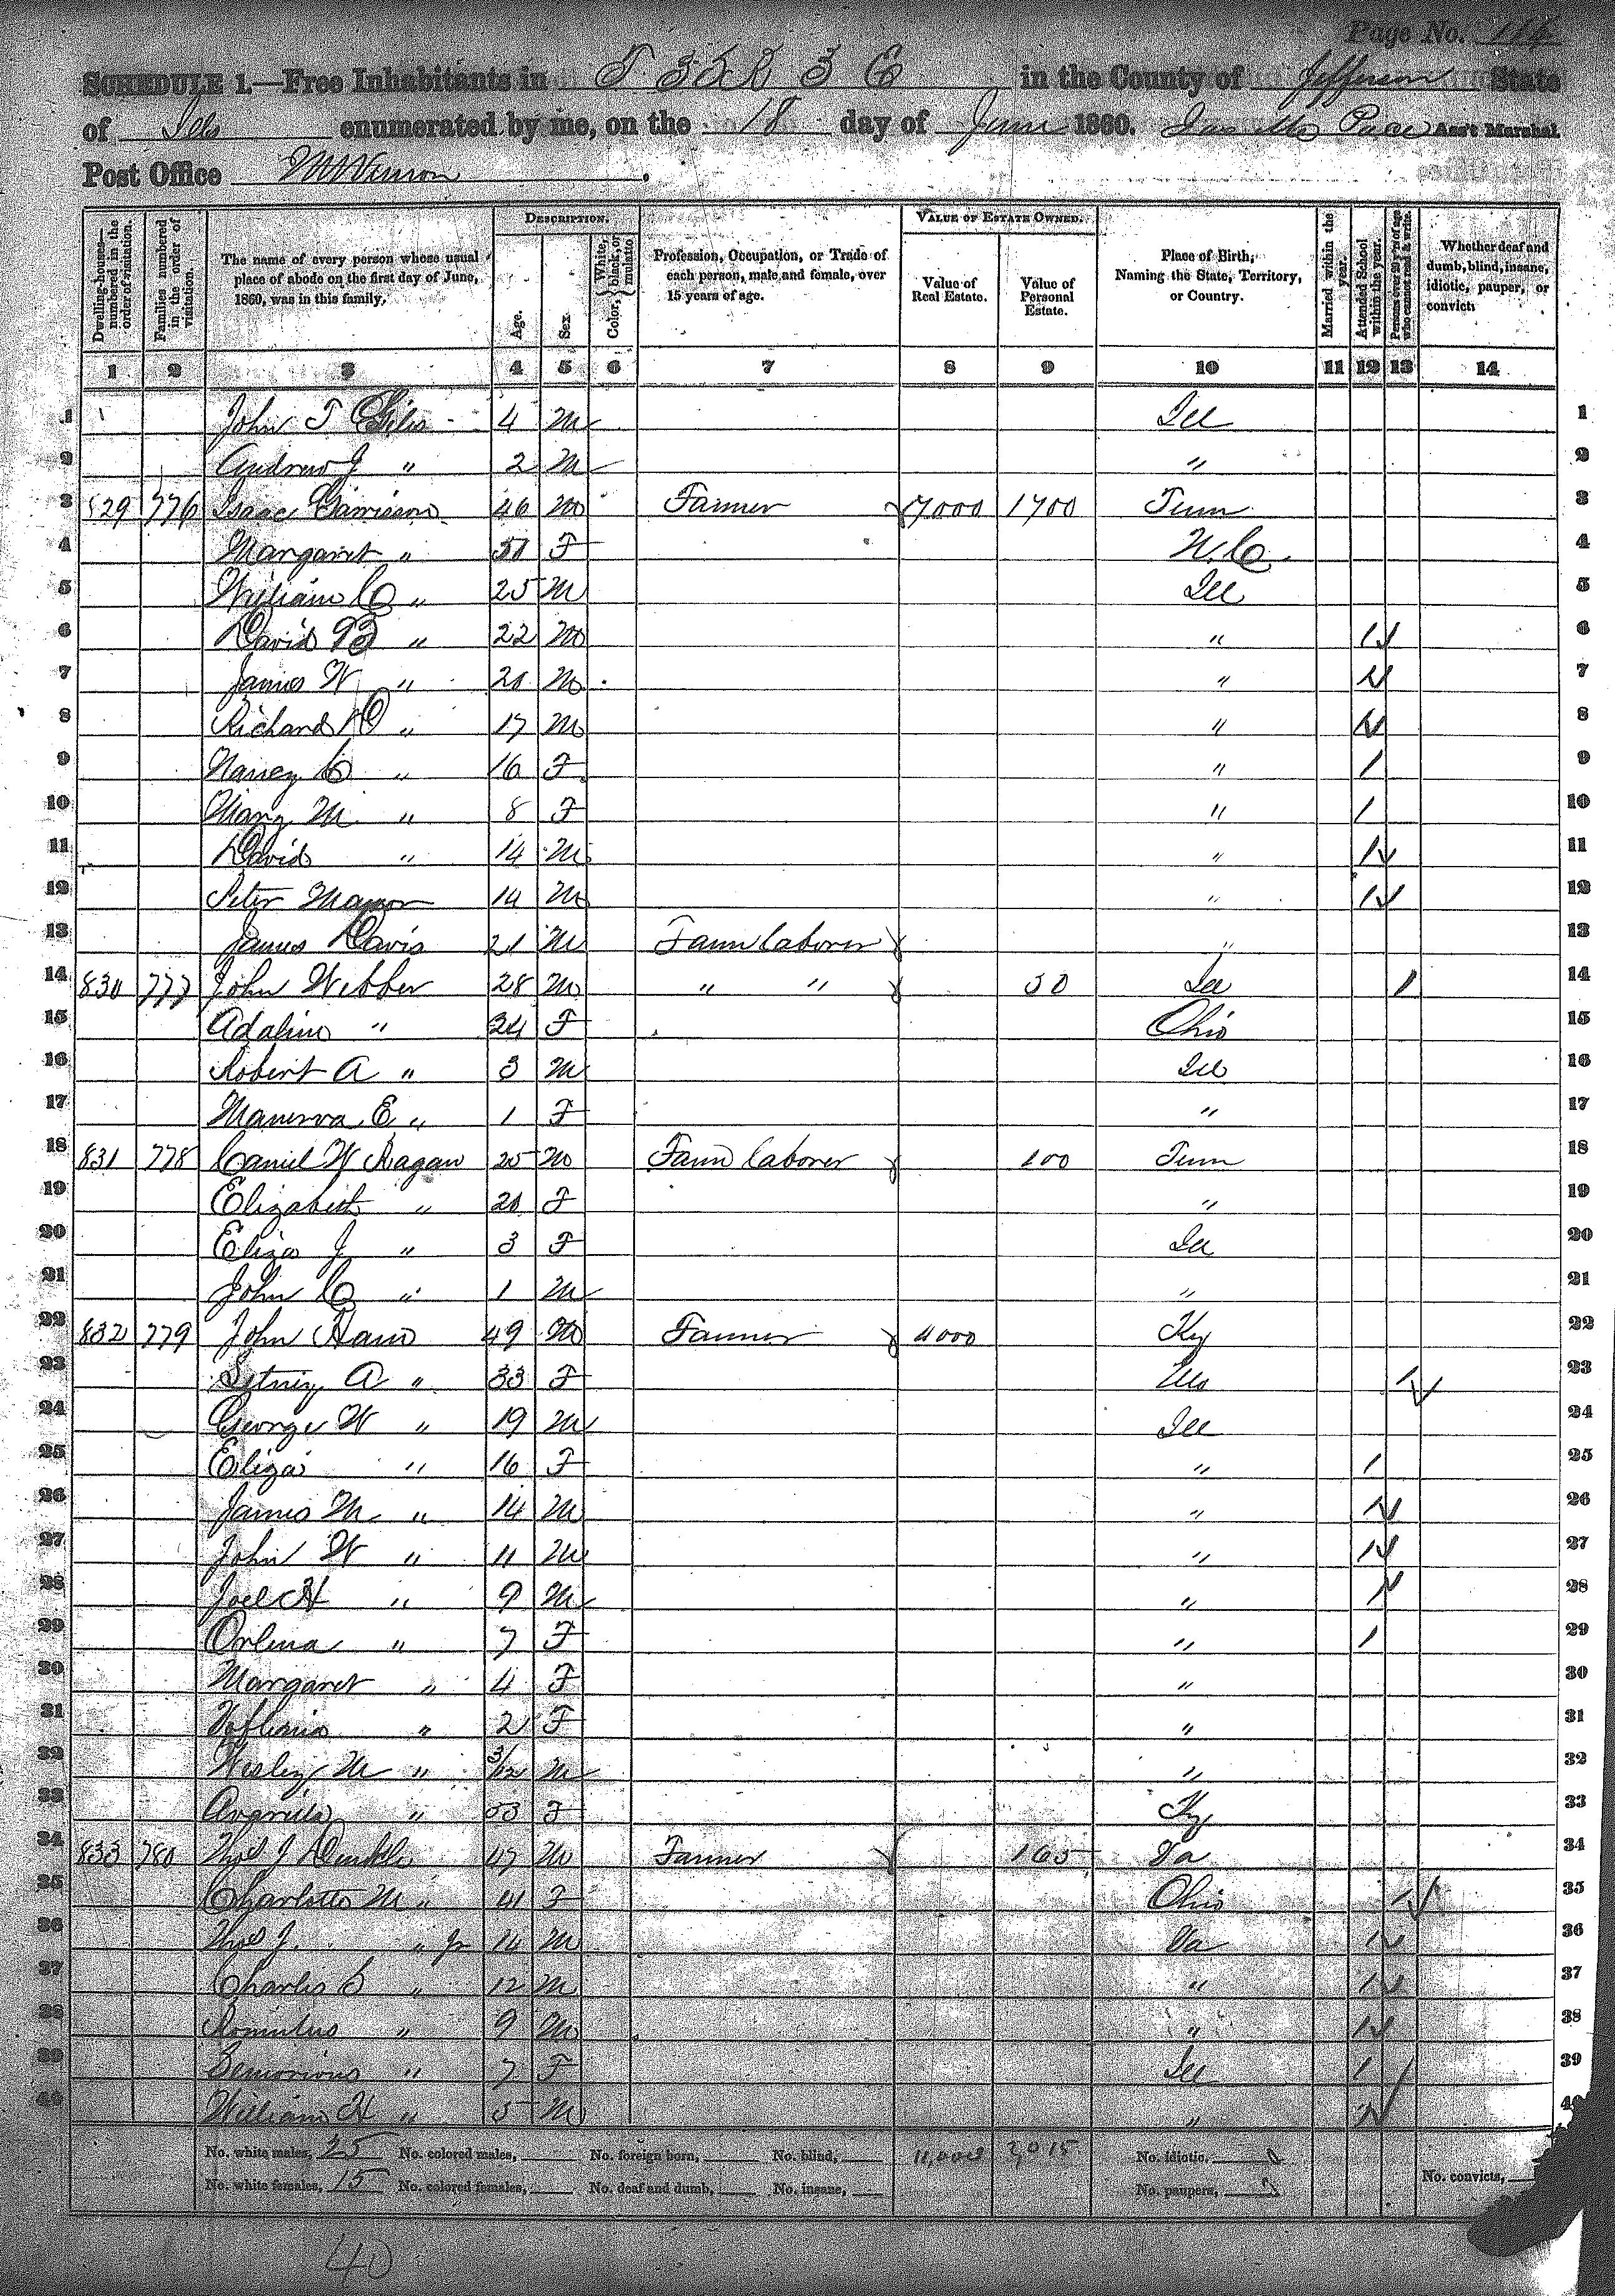 Page No. 114
SCHEDULE 1.—Free Inhabitants in T 3 S R 3 E in the County of Jefferson State
of Ills enumerated by me, on the 18 day of June 1860. Pace Ass't Marshal.
Post Office Mt Vernon.
Dwelling-houses—numbered in the order of visitation. Families numbered in the order of visitation. The name of every person whose usual place of abode on the first day of June, 1860, was in this family. DESCRIPTION. Age. Sex. Color, { White, black, or mulatto. Profession, Occupation, or Trade of each person, male and female, over 15 years of age. VALUE OF ESTATE OWNED. Value of Real Estate. Value of Personal Estate. Place of Birth, Naming the State, Territory, or Country. Married within the year. Attended School within the year. Persons over 20 y'rs of age who cannot read & write. Whether deaf and dumb, blind, insane, idiotic, pauper, or convict.
1 2 3 4 5 6 7 8 9 10 11 12 13 14
1 John T Giles 4 M Ill 1
2 Andrew J " 2 M " 2
3 829 776 Isaac Garrison 46 M Farmer 7000 1700 Tenn 3
4 Margaret " 51 F N.C. 4
5 William C " 25 M Ill 5
6 David B " 22 M " 1 6
7 James W " 21 M " 1 7
8 Richard " 17 M " 1 8
9 Nancy C " 16 F " 1 9
10 Mary M " 8 F " 1 10
11 David " 14 M " 1 11
12 Peter 14 M " 1 12
13 James Davis 21 M Farm laborer " 13
14 830 777 John Webber 28 M " " 50 Ill 1 14
15 Adaline " 24 F Ohio 15
16 Robert A " 3 M Ill 16
17 Manerva E " 1 F " 17
18 831 778 W Ragan 25 M Farm laborer 100 Tenn 18
19 Elizabeth " 21 F " 19
20 Eliza J " 3 F Ill 20
21 John C " 1 M " 21
22 832 779 John 49 M Farmer 4000 Ky 22
23 A " 33 F 1 23
24 George W " 19 M Ill 24
25 Eliza " 16 F " 1 25
26 James M " 14 M " 1 26
27 John W " 11 M " 1 27
28 Joel H " 9 M " 1 28
29 Orlena " 7 F " 1 29
30 Margaret " 4 F " 30
31 " 2 F " 31
32 Wesley M " 3/12 M " 32
33 " 53 F Ky 33
34 833 780 Thos J 47 M Farmer 165 Va 34
35 Charlotte M " 41 F Ohio 1 35
36 Thos J. " Jr 14 M Va 1 36
37 Charles " 12 M " 1 37
38 Romulus " 9 M " 1 38
39 " 7 F Ill 1 39
40 William H " 5 M " 1 40
No. white males, 25 No. colored males, No. foreign born, No. blind, 11,000 2,015 No. idiotic,
No. white females, 15 No. colored females, No. deaf and dumb, No. insane, No. paupers, No. convicts,
40